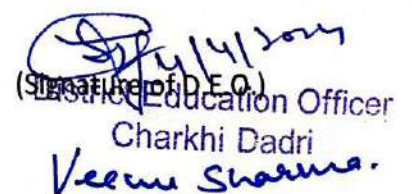 4/4/2024
(Signature of D.E.O.)
District Education Officer
Charkhi Dadri
Sharma.